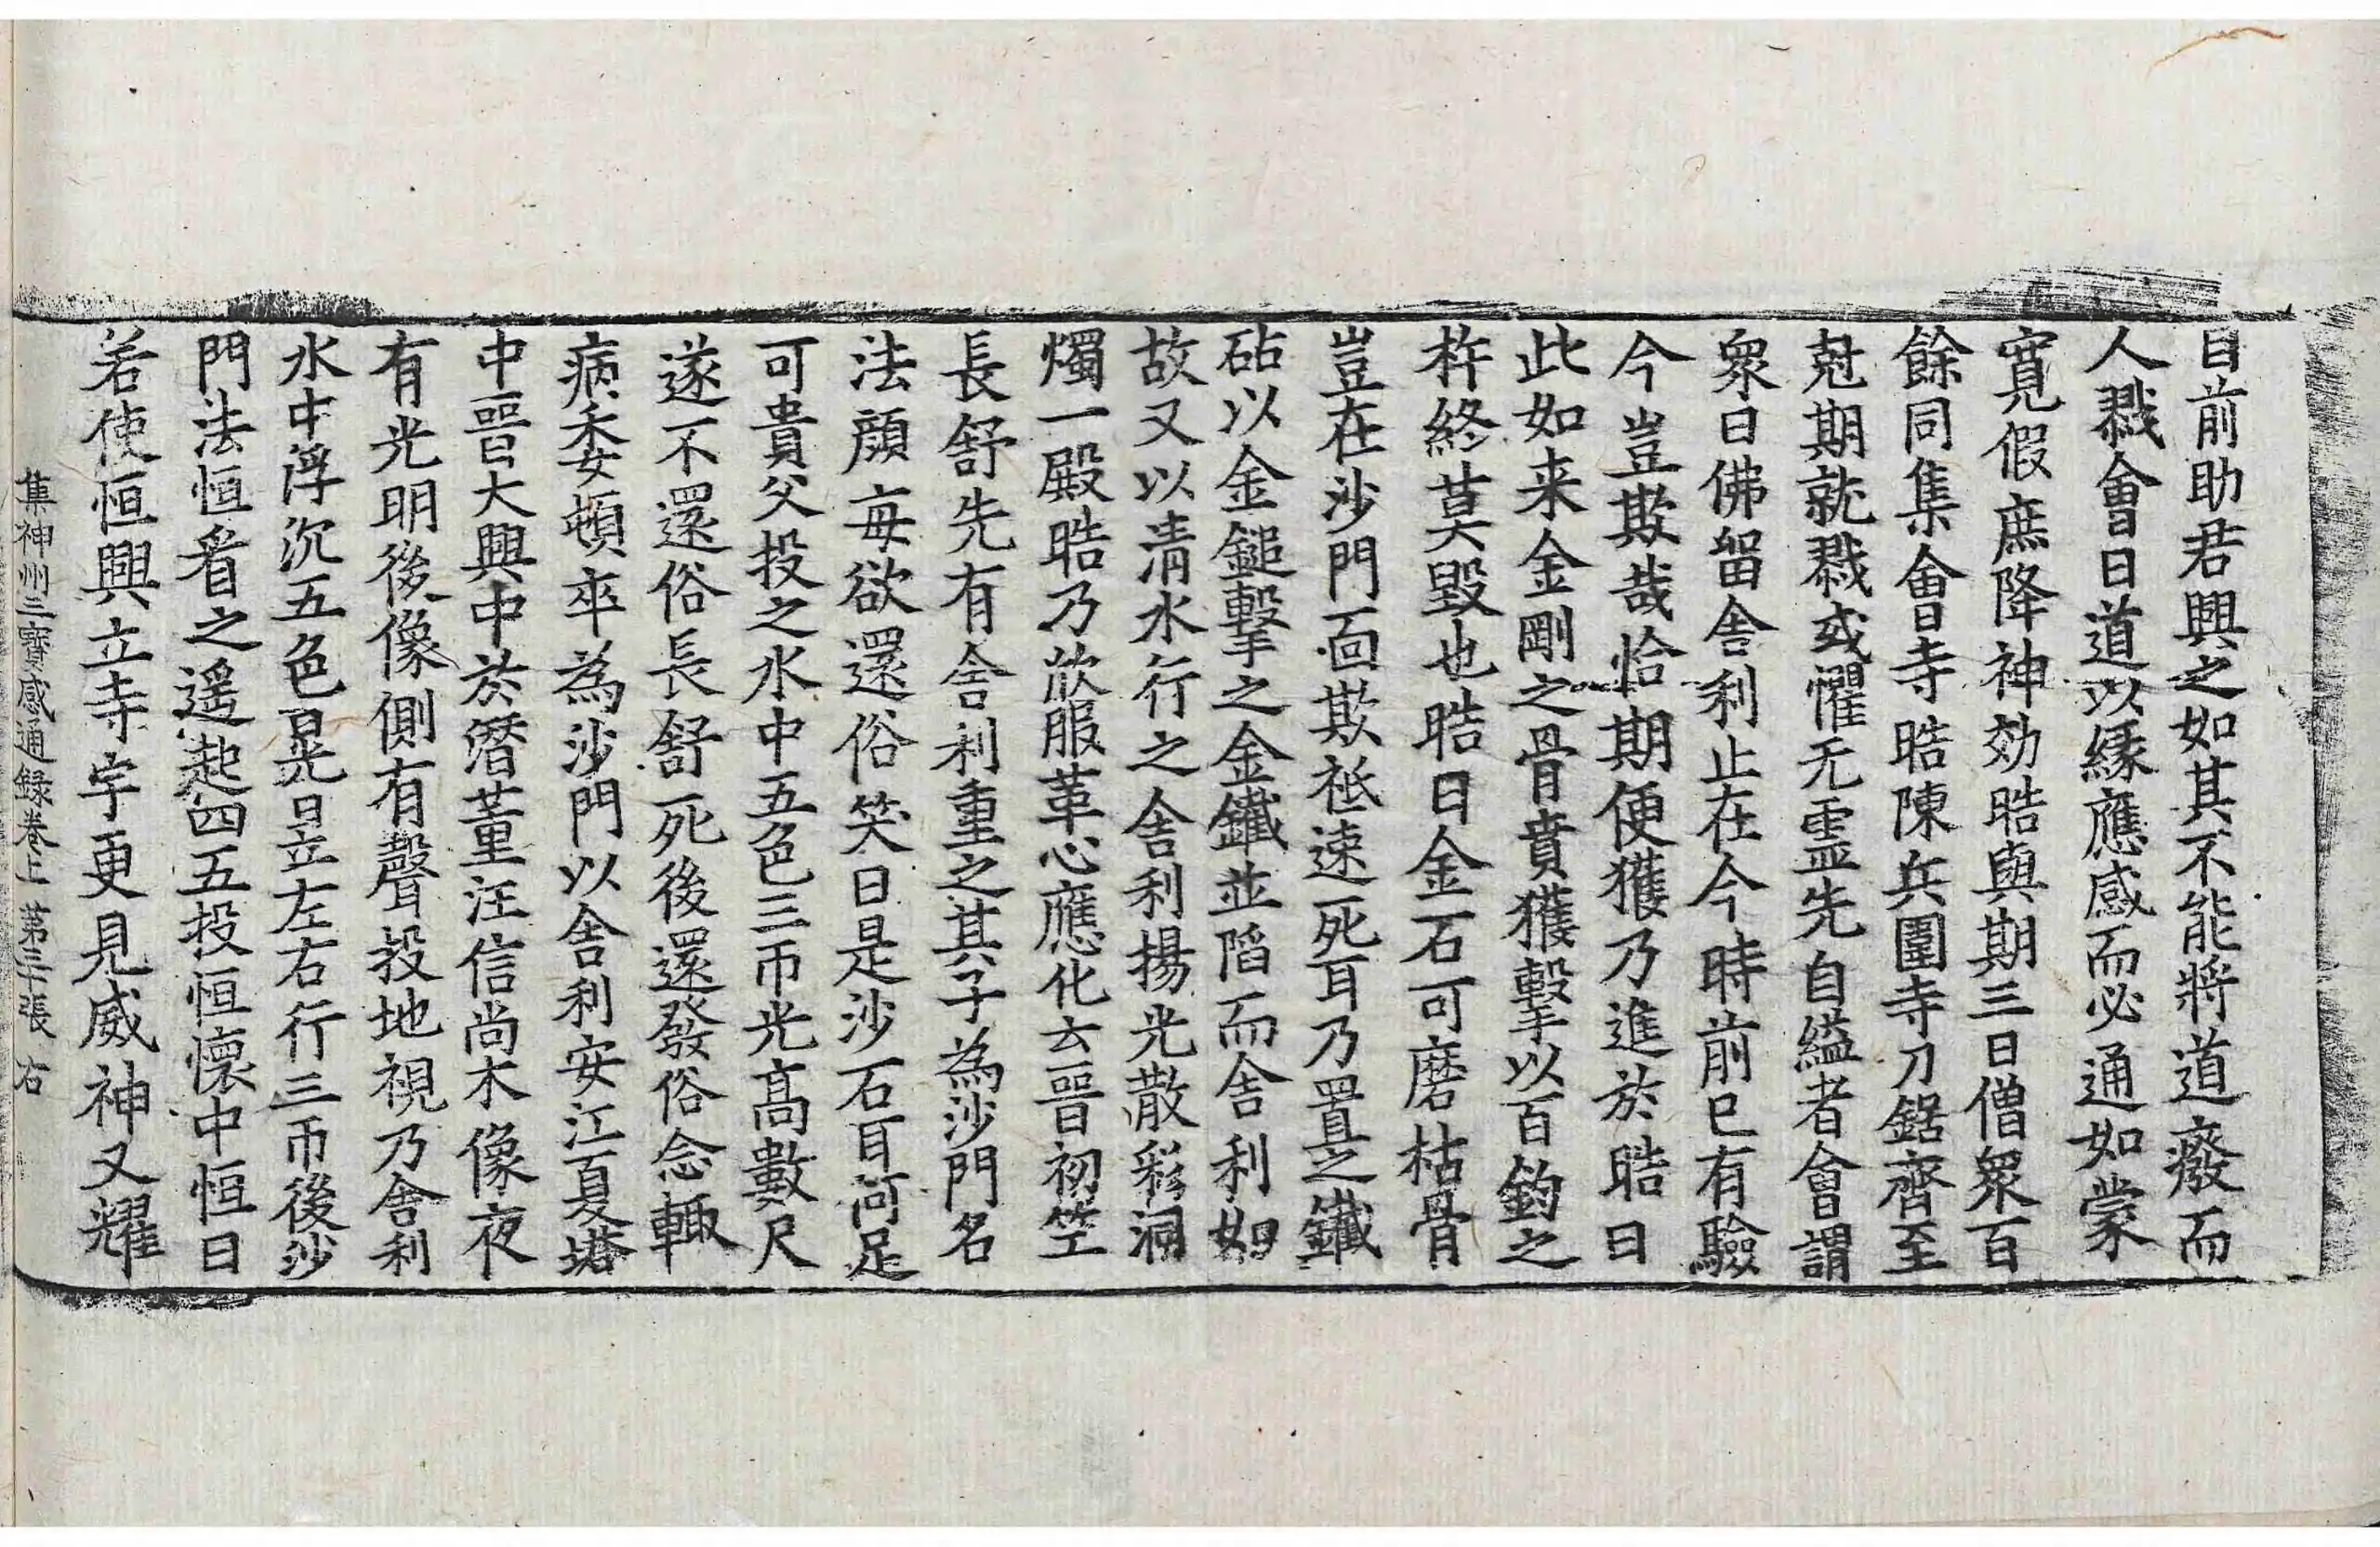 目前助君興之如其不能將道廢而
人戮會曰道以緣應感而必通如蒙
寬假庶降神効晧與期三日僧眾百
餘同集會寺晧陳兵圍寺刀鋸齊至
尅期就戮或懼无靈先自縊者會謂
眾曰佛留舍利止在今時前已有驗
今豈欺哉恰期便獲乃進於晧曰
此如来金剛之骨賁獲擊以百鈞之
杵終莫毀也晧曰金石可磨枯骨
豈在沙門面欺祗速死耳乃置之鐵
砧以金鎚擊之金鐵並陷而舍利如
故又以清水行之舍利揚光散彩洞
燭一殿晧乃欣服革心應化云晉初笁
長舒先有舍利重之其子為沙門名
法顏每欲還俗笑曰是沙石耳何足
可貴父投之水中五色三帀光高數尺
遂不還俗長舒死後還發俗念輙
病委頓卒為沙門以舍利安江夏塔
中晉大興中於潛董汪信尚木像夜
有光明後像側有聲投地視乃舍利
水中浮沉五色晃昱左右行三帀後沙
門法恒看之遥起四五投恒懷中恒曰
若使恒興立寺宇更見威神又耀
集神州三寶感通録卷上 第三十張 右